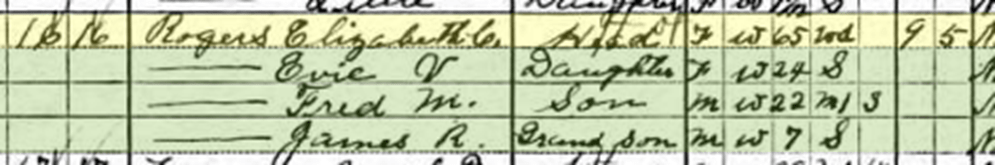 Daughter F W S
16 16 Rogers Elizabeth C. Head F W 65 Wd 9 5
Evie V Daughter F W 24 S
Fred M. Son M W 22 M1 S
James R. Grand son M W 7 S